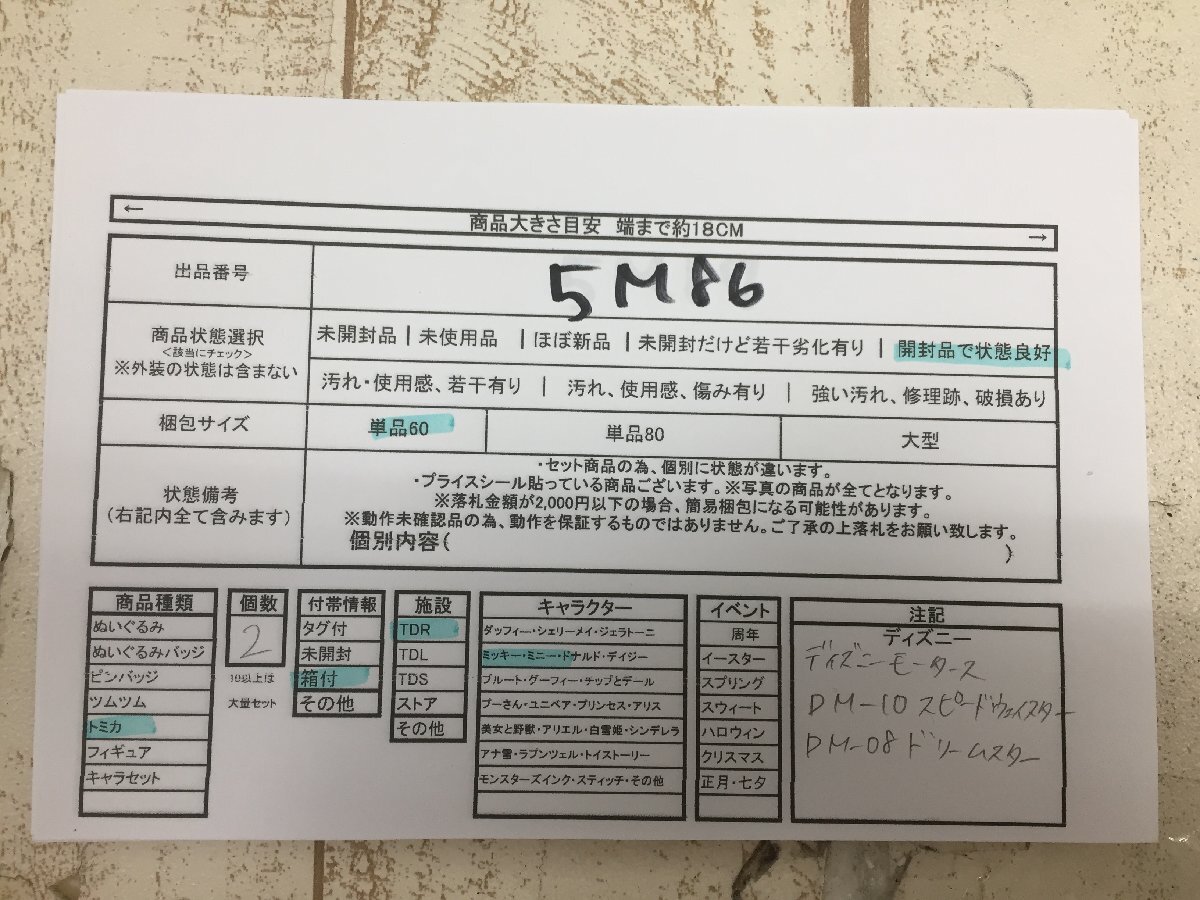 ←
商品大きさ目安 端まで約18CM
→
出品番号
5M86
商品状態選択
<該当にチェック>
※外装の状態は含まない
未開封品 | 未使用品 | ほぼ新品 | 未開封だけど若干劣化有り | 開封品で状態良好
汚れ・使用感、若干有り | 汚れ、使用感、傷み有り | 強い汚れ、修理跡、破損あり
梱包サイズ
単品60
単品80
大型
状態備考
(右記内全て含みます)
・セット商品の為、個別に状態が違います。
・プライスシール貼っている商品ございます。※写真の商品が全てとなります。
※落札金額が2,000円以下の場合、簡易梱包になる可能性があります。
※動作未確認品の為、動作を保証するものではありません。ご了承の上落札をお願い致します。
個別内容( )
商品種類
ぬいぐるみ
ぬいぐるみバッジ
ピンバッジ
ツムツム
トミカ
フィギュア
キャラセット
個数
2
10以上は
大量セット
付帯情報
タグ付
未開封
箱付
その他
施設
TDR
TDL
TDS
ストア
その他
キャラクター
ダッフィー・シェリーメイ・ジェラトーニ
ミッキー・ミニー・ドナルド・デイジー
プルート・グーフィー・チップとデール
プーさん・ユニベア・プリンセス・アリス
美女と野獣・アリエル・白雪姫・シンデレラ
アナ雪・ラプンツェル・トイストーリー
モンスターズインク・スティッチ・その他
イベント
周年
イースター
スプリング
スウィート
ハロウィン
クリスマス
正月・七夕
注記
ディズニー
ディズニーモータース
DM-10 スピードウェイスター
DM-08 ドリームスター